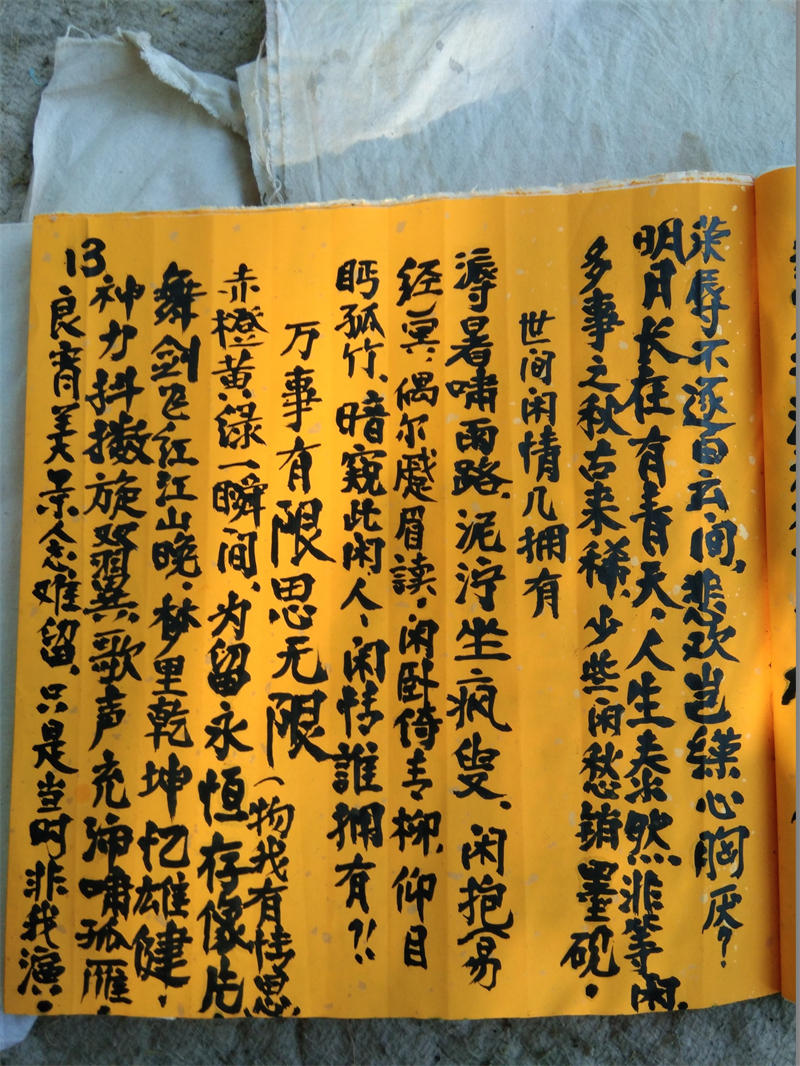 荣辱不逐白云间,悲欢岂绕心胸厌?
明月长在有青天、人生泰然非等闲.
多事之秋古来稀.少些闲愁销墨砚.
世间闲情几拥有
溽暑啸雨路.泥泞坐疯叟、闲抱易
经冥.偶尔蹙眉读.闲卧倚青柳.仰目
眄孤竹、暗窥此闲人、闲情誰拥有?!
万事有限思无限(物我有情思
赤橙黄绿一瞬间、为留永恒存像片.
舞剑飞红江山晚.梦里乾坤忆雄健.
神力抖擞旋双翼.歌声充沛啸孤雁.
13
良宵美景人忘难留.只是当时非我演.